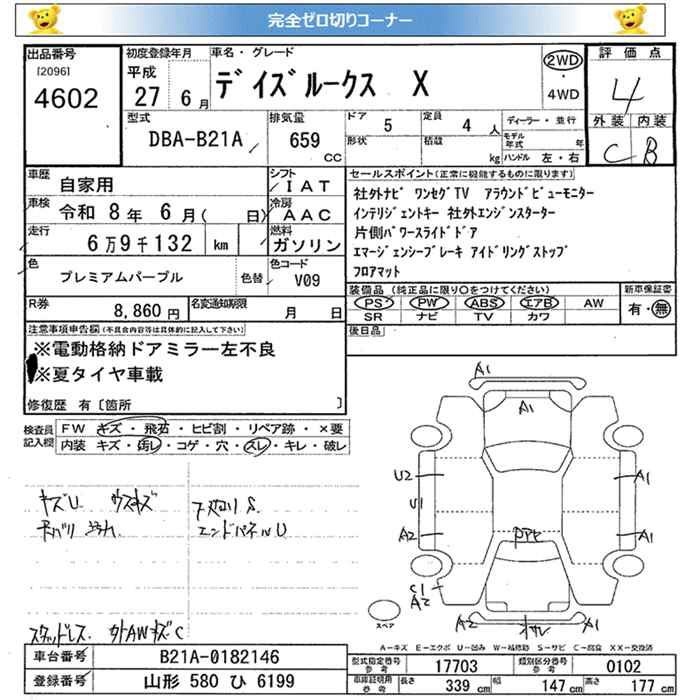 完全ゼロ切りコーナー
出品番号 初度登録年月 車名・グレード 評価点
[2096]
4602
平成
27 6月
デイズルークス X
2WD
・
4WD
4
型式 排気量 ドア 定員 ディーラー・並行 外装 内装
DBA-B21A 659 CC 5 4 人
形状 積載 kg
モデル年式 年
ハンドル 左・右
C B
車歴 自家用 シフト IAT
車検 令和 8年 6月( 日) 冷房 AAC
走行 6万9千132 km 燃料 ガソリン
色 プレミアムパープル 色替 色コード V09
R券 8,860円 名変通知期限 月 日
セールスポイント(正常に機能するものに限ります)
社外ナビ ワンセグTV アラウンドビューモニター
インテリジェントキー 社外エンジンスターター
片側パワースライドドア
エマージェンシーブレーキ アイドリングストップ
フロアマット
装備品 (純正品に限り○をつけてください) 新車保証書
PS PW ABS エアB AW
SR ナビ TV カワ
有・無
後日品
注意事項申告欄(不具合内容等は具体的に記入して下さい)
※電動格納ドアミラー左不良
※夏タイヤ車載
修復歴 有〔箇所 〕
検査員記入欄
FW キズ・飛石・ヒビ割・リペア跡・×要
内装 キズ・汚レ・コゲ・穴・スレ・キレ・破レ
キズU ウスキズ
エンドパネルU
スタッドレス 外AWキズC
A1
A1
U2 A1
U1
A2 A1
C1
A2
A2 A1
スペア
A-キズ E-エクボ U-凹み W-補修跡 S-サビ C-腐食 XX-交換済
車台番号 B21A-0182146
登録番号 山形 580 ひ 6199
型式指定番号 参考 17703 類別区分番号 参考 0102
車庫証明用 参考 長さ 339 cm 幅 147 cm 高さ 177 cm